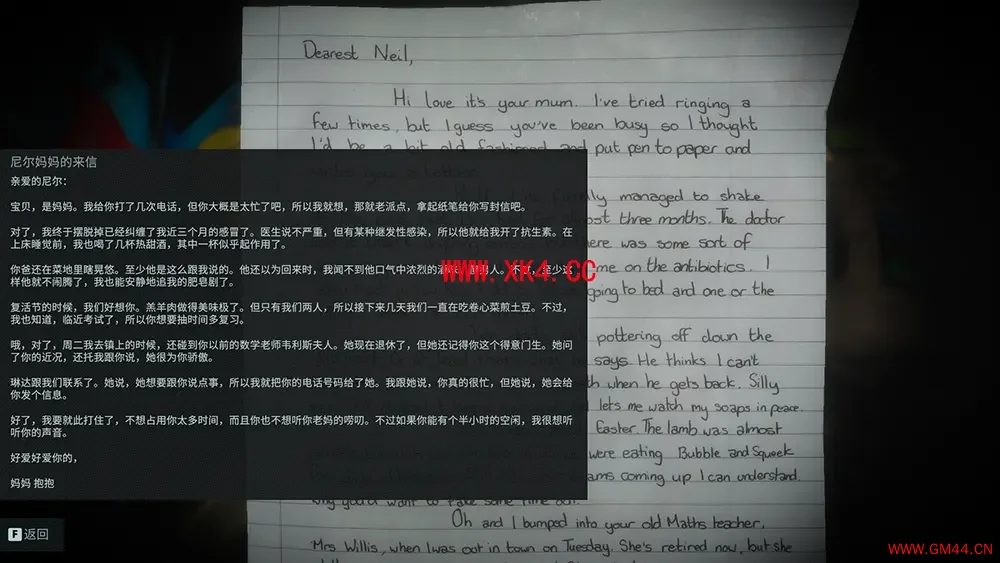 Dearest Neil,
Hi love it's your mum. I've tried ringing a
few times, but I guess you've been busy so I thought
I'd be a bit old fashioned and put pen to paper and
managed to shake
three months. The doctor
there was some sort of
me on the antibiotics. I
going to bed and one or the
pottering off down the
says. He thinks I can't
when he gets back. Silly
lets me watch my soaps in peace.
Easter. The lamb was almost
were eating Bubble and Squeek
coming up I can understand.
why you'd want to take some time out.
Oh and I bumped into your old Maths teacher,
Mrs Willis, when I was out in town on Tuesday. She's retired now, but she
尼尔妈妈的来信
亲爱的尼尔：
宝贝，是妈妈。我给你打了几次电话，但你大概是太忙了吧，所以我就想，那就老派点，拿起纸笔给你写封信吧。
对了，我终于摆脱掉已经纠缠了我近三个月的感冒了。医生说不严重，但有某种继发性感染，所以他就给我开了抗生素。在
上床睡觉前，我也喝了几杯热甜酒，其中一杯似乎起作用了。
你爸还在菜地里瞎晃悠。至少他是这么跟我说的。他还以为回来时，我闻不到他口气中浓烈的
男人。不过，至少这
样他就不闹腾了，我也能安静地追我的肥皂剧了。
复活节的时候，我们好想你。羔羊肉做得美味极了。但只有我们两人，所以接下来几天我们一直在吃卷心菜煎土豆。不过，
我也知道，临近考试了，所以你想要抽时间多复习。
哦，对了，周二我去镇上的时候，还碰到你以前的数学老师韦利斯夫人。她现在退休了，但她还记得你这个得意门生。她问
了你的近况，还托我跟你说，她很为你骄傲。
琳达跟我们联系了。她说，她想要跟你说点事，所以我就把你的电话号码给了她。我跟她说，你真的很忙，但她说，她会给
你发个信息。
好了，我要就此打住了，不想占用你太多时间，而且你也不想听你老妈的唠叨。不过如果你能有个半小时的空闲，我很想听
听你的声音。
好爱好爱你的，
妈妈 抱抱
WWW.XK4.CC
F 返回
WWW.GM44.CN